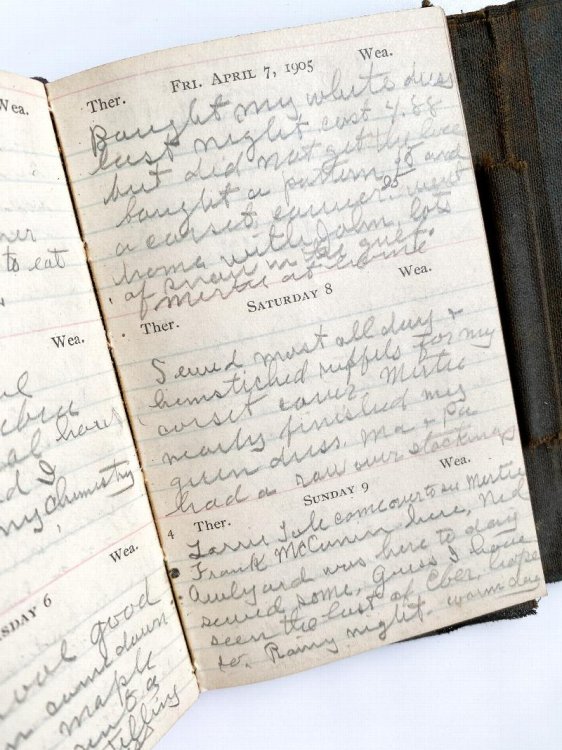 Wea.
to eat
Wea.
hours
d I
my Chemistry
Wea.
SDAY 6
good
came down
maple
Ther. FRI. APRIL 7, 1905 Wea.
Bought my white dress
last night cost 4.88
but did not get the lace
bought a pattern 15 and
a corset cover 25 went
home with John lots
of snow in the
Mertie
Ther. SATURDAY 8 Wea.
Sewed most all day &
hemstiched ruffels for my
corset cover Mertie
nearly finished my
green dress. Ma & Pa
had a row over stockings
Ther. SUNDAY 9 Wea.
4
come over to see Mertie
Frank McCunn here, Ned
was here to day
sewed some, Guess I have
seen the last of Eber hope
so. Rainy night. warm day